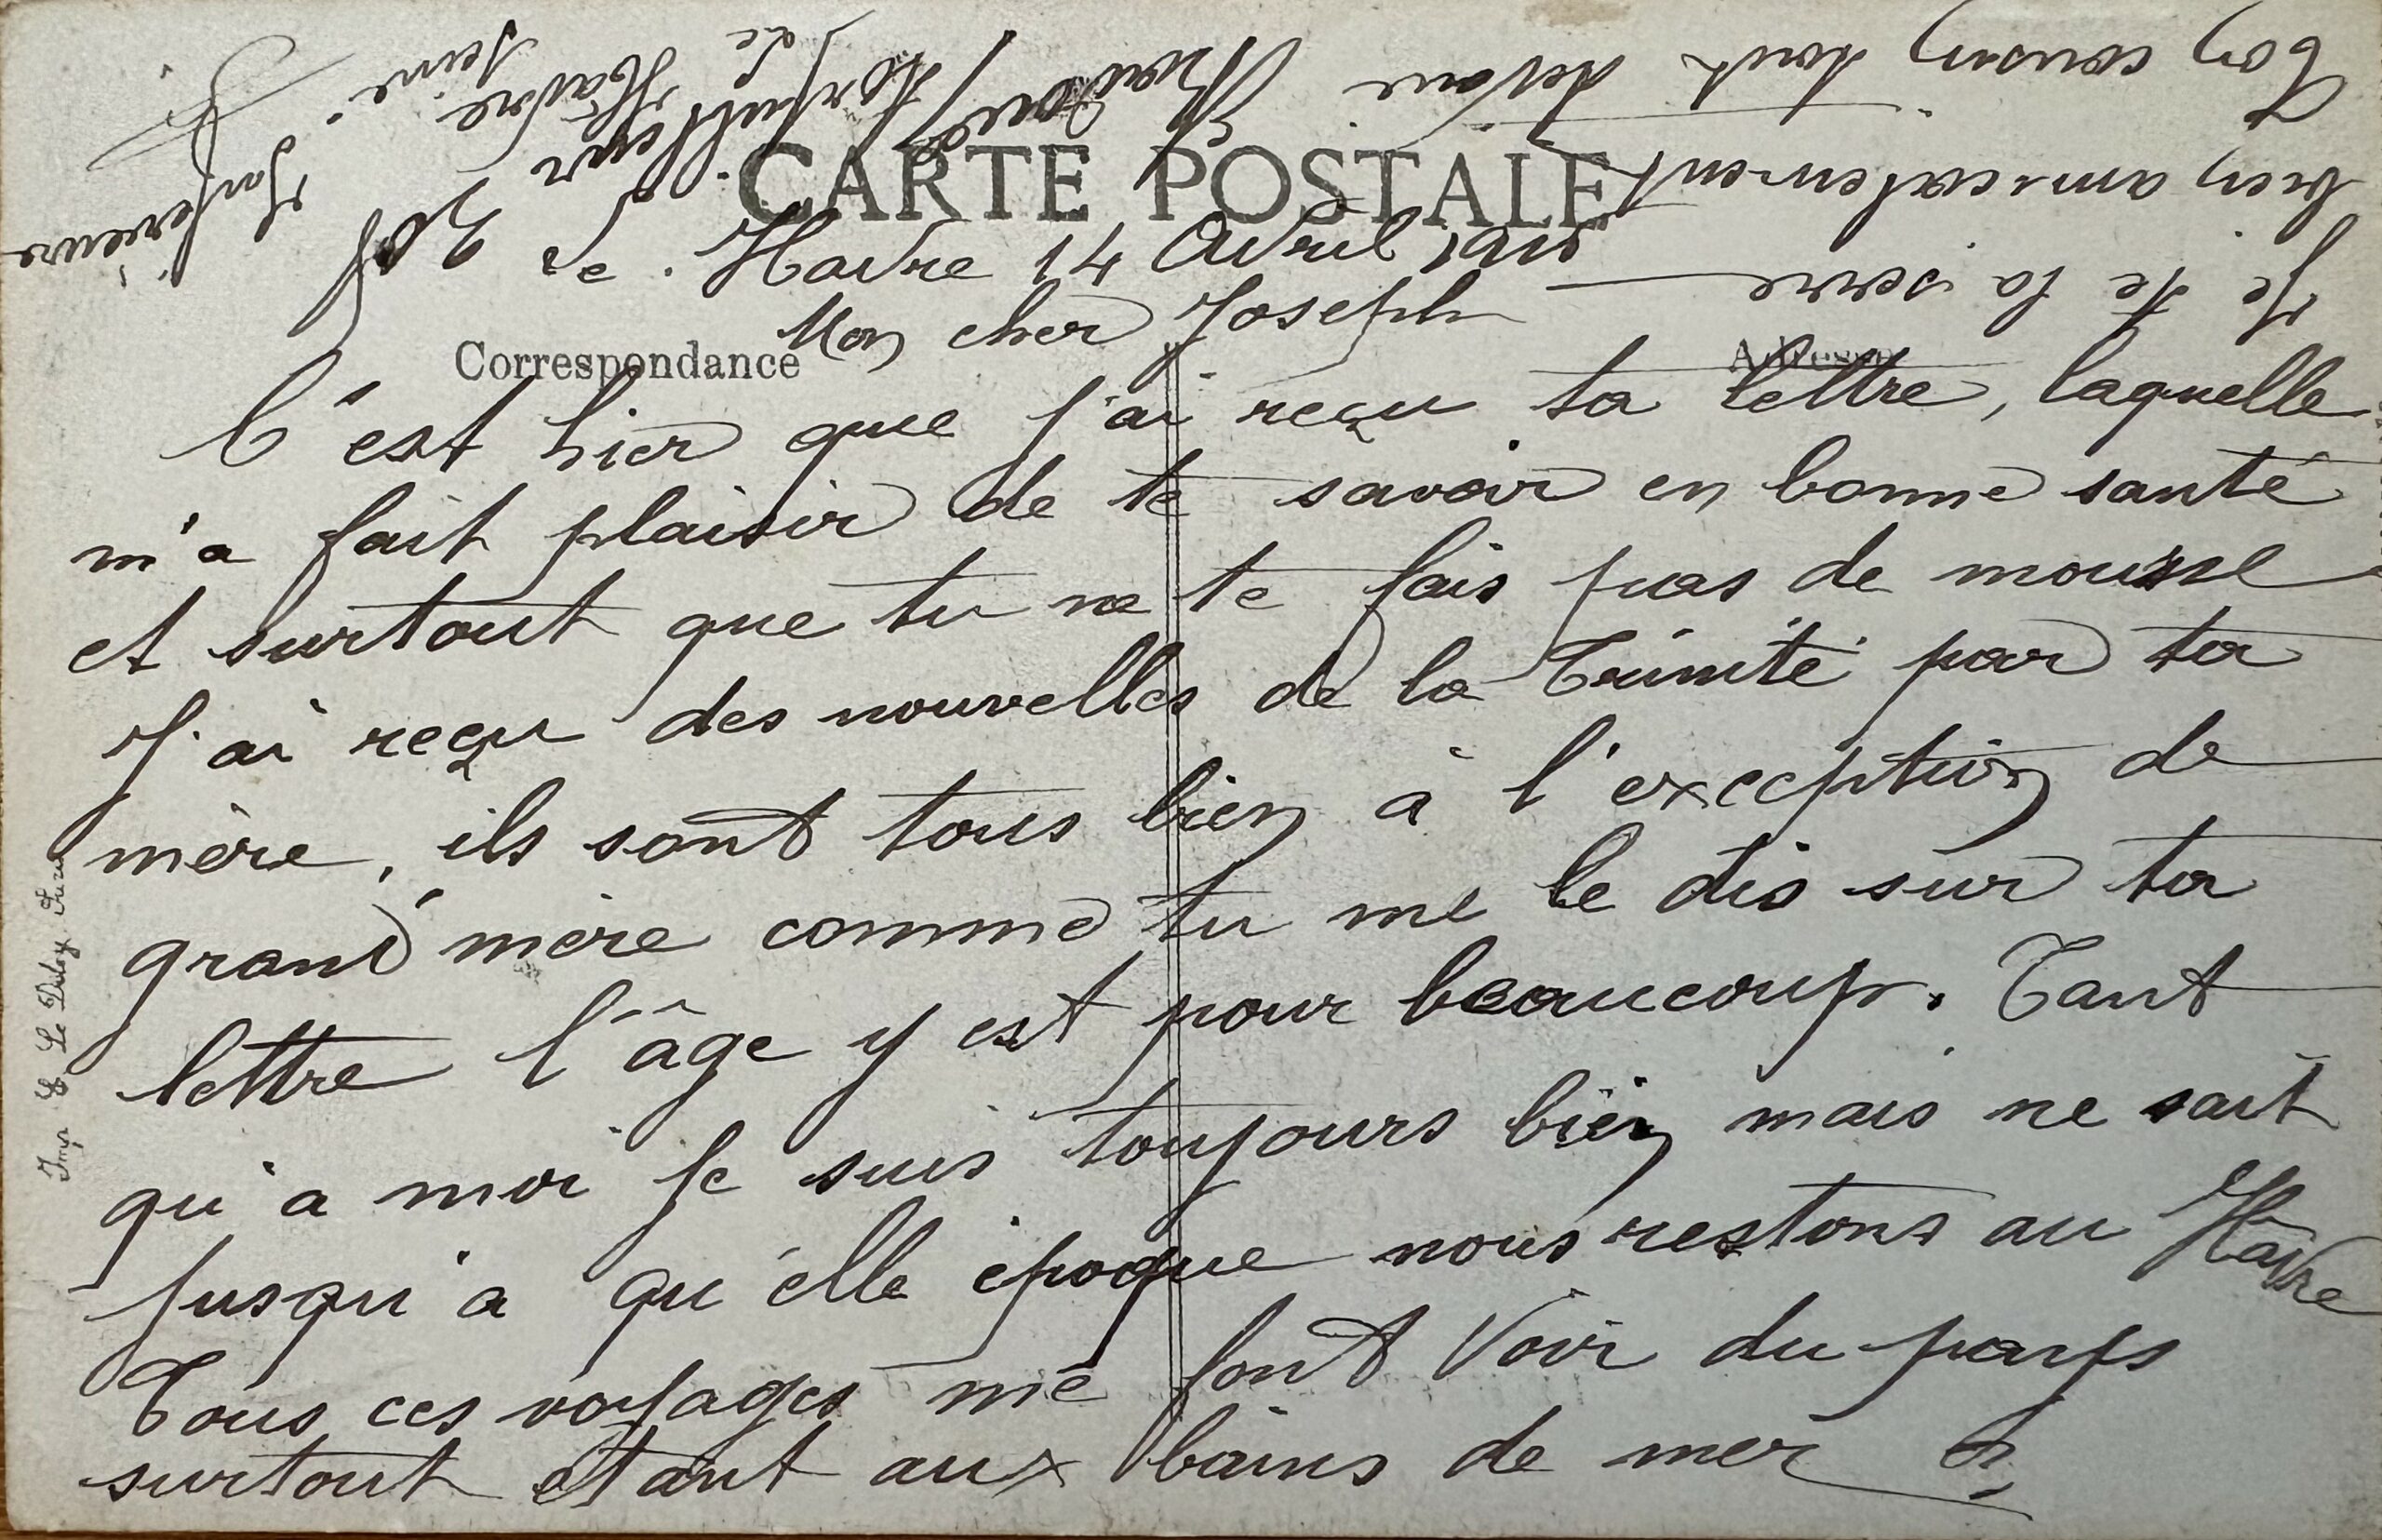 CARTE POSTALE
Le Havre 14 Avril 1915
Mon cher Joseph
Correspondance
Adresse
C'est hier que j'ai reçu ta lettre, laquelle
m'a fait plaisir de te savoir en bonne santé
et surtout que tu ne te fais pas de mousse
J'ai reçu des nouvelles de la Trinité par ta
mère, ils sont tous bien à l'exception de
grand'mère comme tu me le dis sur ta
lettre l'âge y est pour beaucoup. Tant
qu'a moi je suis toujours bien mais ne sait
jusqu'a qu'elle époque nous restons au Hâvre
Tous ces voyages me font voir du pays
surtout étant aux bains de mer
Je te la serre
bien amicalement
Ton cousin tout dévoué
Havre
Seine
Inférieure
Imp E Le Deley Paris